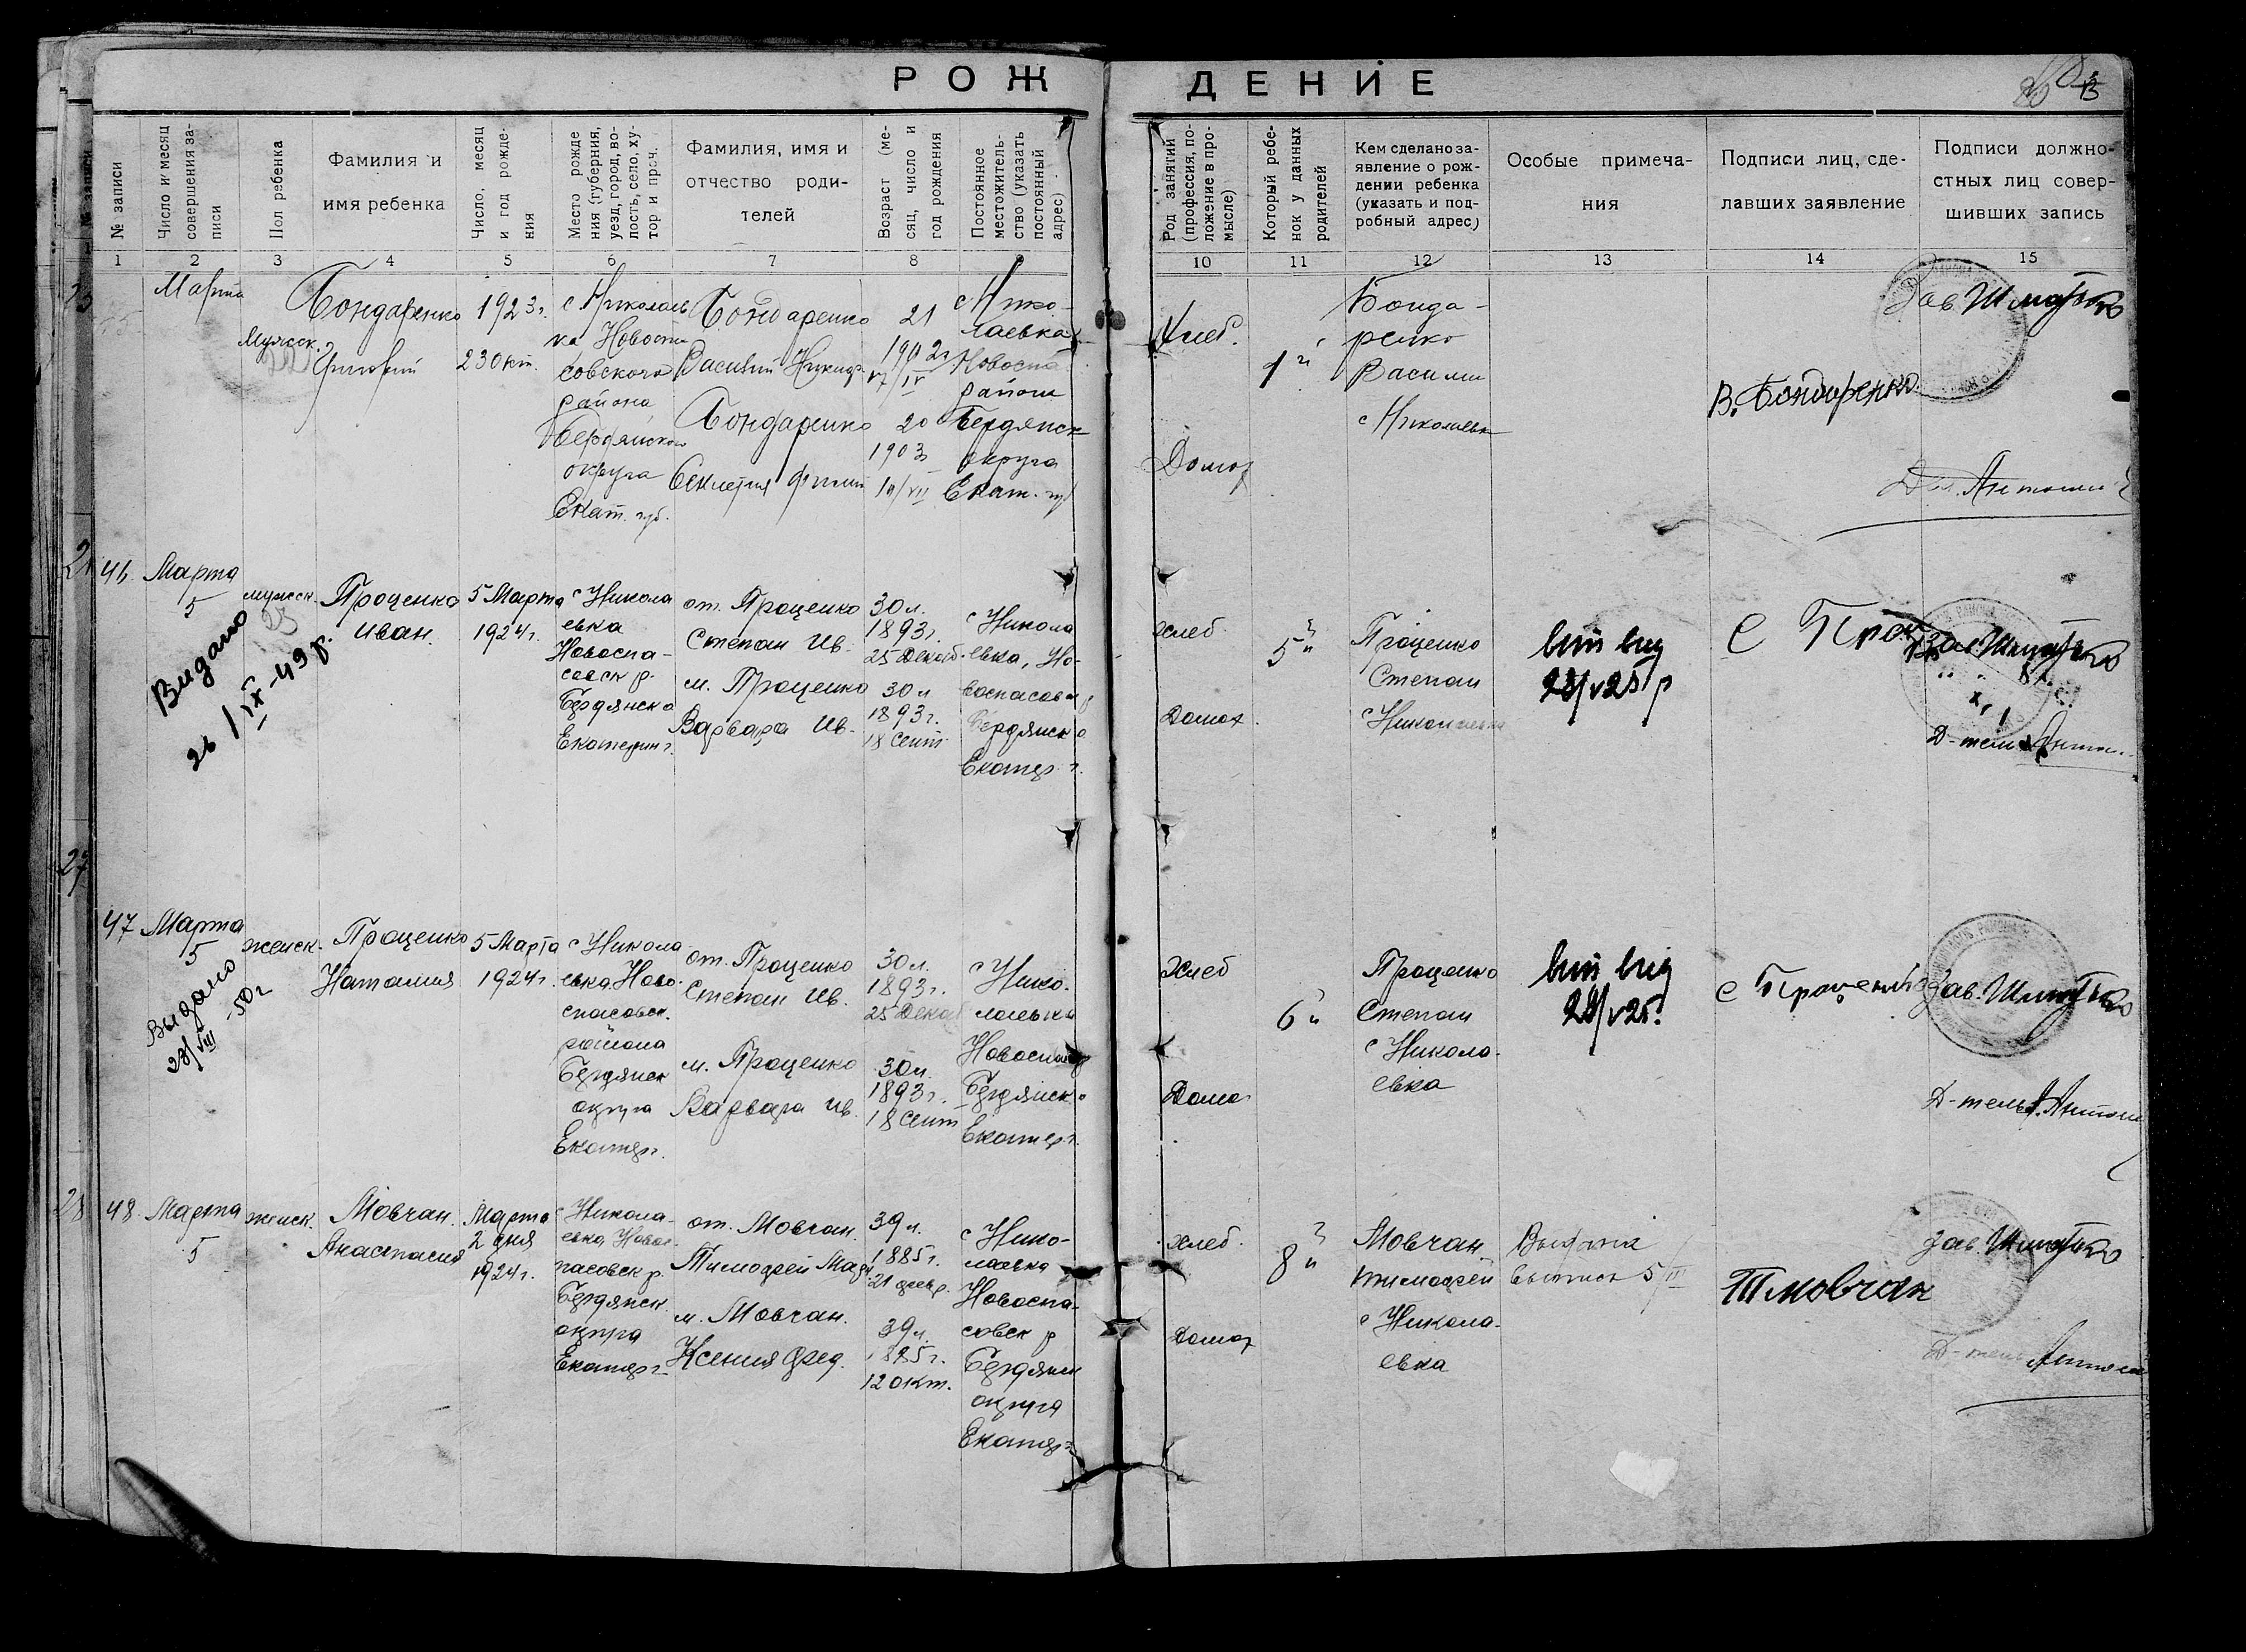 РОЖДЕНИЕ
№ записи
Число и месяц совершения записи
Пол ребенка
Фамилия и
имя ребенка
Число, месяц и год рождения
Место рождения (губерния, уезд, город, волость, село, хутор и проч.
Фамилия, имя и
отчество роди-
телей
Возраст (месяц, число и год рождения
Постоянное местожительство (указать постоянный адрес)
Род занятий (профессия, положение в промысле)
Который ребенок у данных родителей
Кем сделано за-
явление о рож-
дении ребенка
(указать и под-
робный адрес)
Особые примеча-
ния
Подписи лиц, сде-
лавших заявление
Подписи должно-
стных лиц совер-
шивших запись
1 2 3 4 5 6 7 8 9 10 11 12 13 14 15
Марта
мужск.
Бондаренко
1923г.
23 окт.
с Николаев
ка Новоспа
совского
района
Бердянского
округа
Екат. губ.
Бондаренко
Василий
Бондаренко
21
1902г
17/IV
20
1903
с Нико-
лаевка
Новоспа
район
Бердянск
округа
Екат. губ
Хлеб.
Домох
1й
Бонда-
ренко
Василий
с Николаевк
В. Бондаренко
Зав. Шматько
46 Марта
5
Видано
26/IX-49р.
мужск.
Проценко
Иван.
5 Марта
1924г.
с Никола
евка
Новоспа-
совск р.
Бердянск о
Екатерин г.
от. Проценко
Степан Ив.
м. Проценко
Варвара Ив.
30л.
1893г.
25 Декаб.
30л
1893г.
18 Сент
с Никола
евка, Но-
воспасовск р
Бердянск о
Екатер. г.
хлеб
Домох.
5й
Проценко
Степан
с Николаевка
28/V25р
С Проц
Зав. Шматько
47 Марта
5
Выдано
23/VIII-50г
женск.
Проценко
Наталия
5 Марта
1924г.
с Никола
евка Ново-
спасовск.
района
Бердянск
округа
Екатер г.
от. Проценко
Степан Ив.
м. Проценко
Варвара Ив.
30л.
1893г.
25 Дека
30л.
1893г.
18 Сент
с Нико-
лаевка
Новоспас р
Бердянск о
Екатер г.
Хлеб
Домо
6й
Проценко
Степан
с Никола-
евка
28/V25.
С Проценко
Зав. Шматько
48 Марта
5
женск.
Мовчан.
Анастасия
Марта
2 дня
1924г.
с Никола-
евка Новос
пасовск р.
Бердянск.
округа
Екатер г.
от. Мовчан.
Тимофей
м. Мовчан.
Ксения Фед.
39л.
1885г.
21 февр.
39л.
1885г.
12 окт.
с Нико-
лаевка
Новоспа-
совск р
Бердянск
округа
Екатер г.
хлеб.
Домох
8й
Мовчан
Тимофей
с Никола-
евка
Выдана
выпись 5/III
Т Мовчан
Зав. Шматько